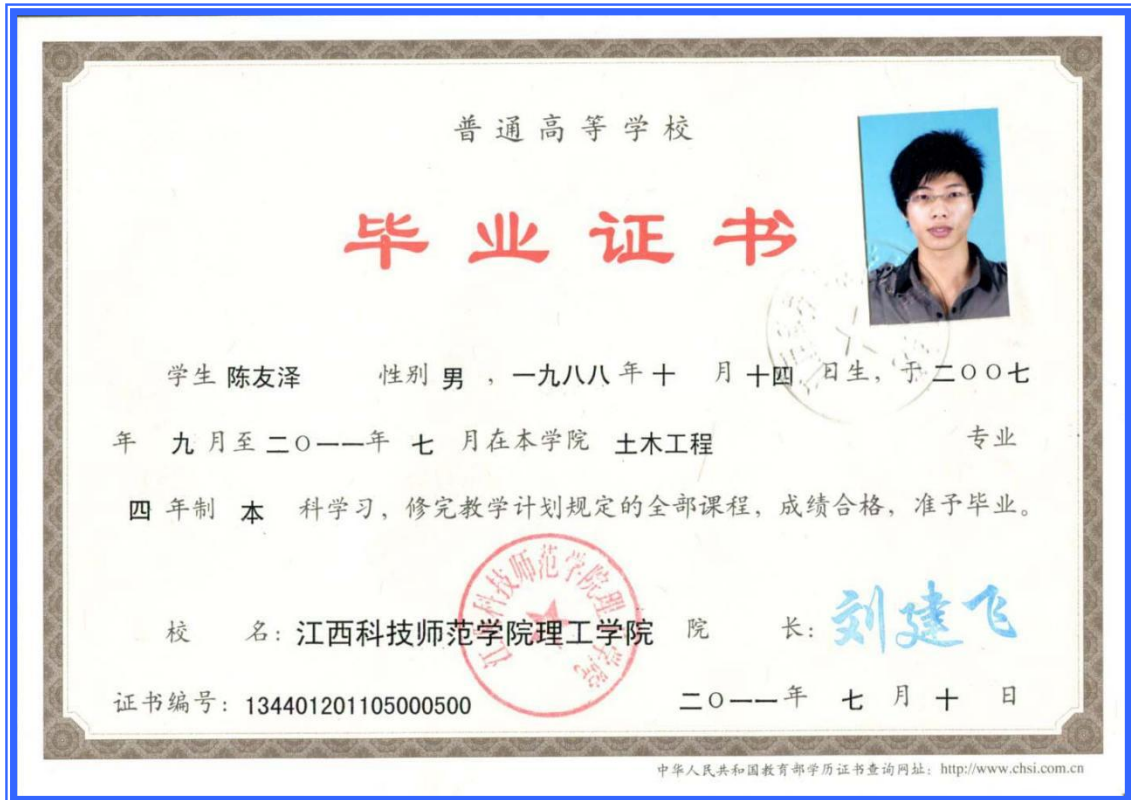 普通高等学校
毕业证书
学生 陈友泽 性别 男 ，一九八八 年 十 月 十四 日生，于 二〇〇七
年 九 月至 二〇一一年 七 月在本学院 土木工程 专业
四 年制 本 科学习，修完教学计划规定的全部课程，成绩合格，准予毕业。
江西科技师范学院理工学院
校 名：江西科技师范学院理工学院 院 长：刘建飞
证书编号：134401201105000500 二〇一一年 七 月 十 日
中华人民共和国教育部学历证书查询网址：http://www.chsi.com.cn